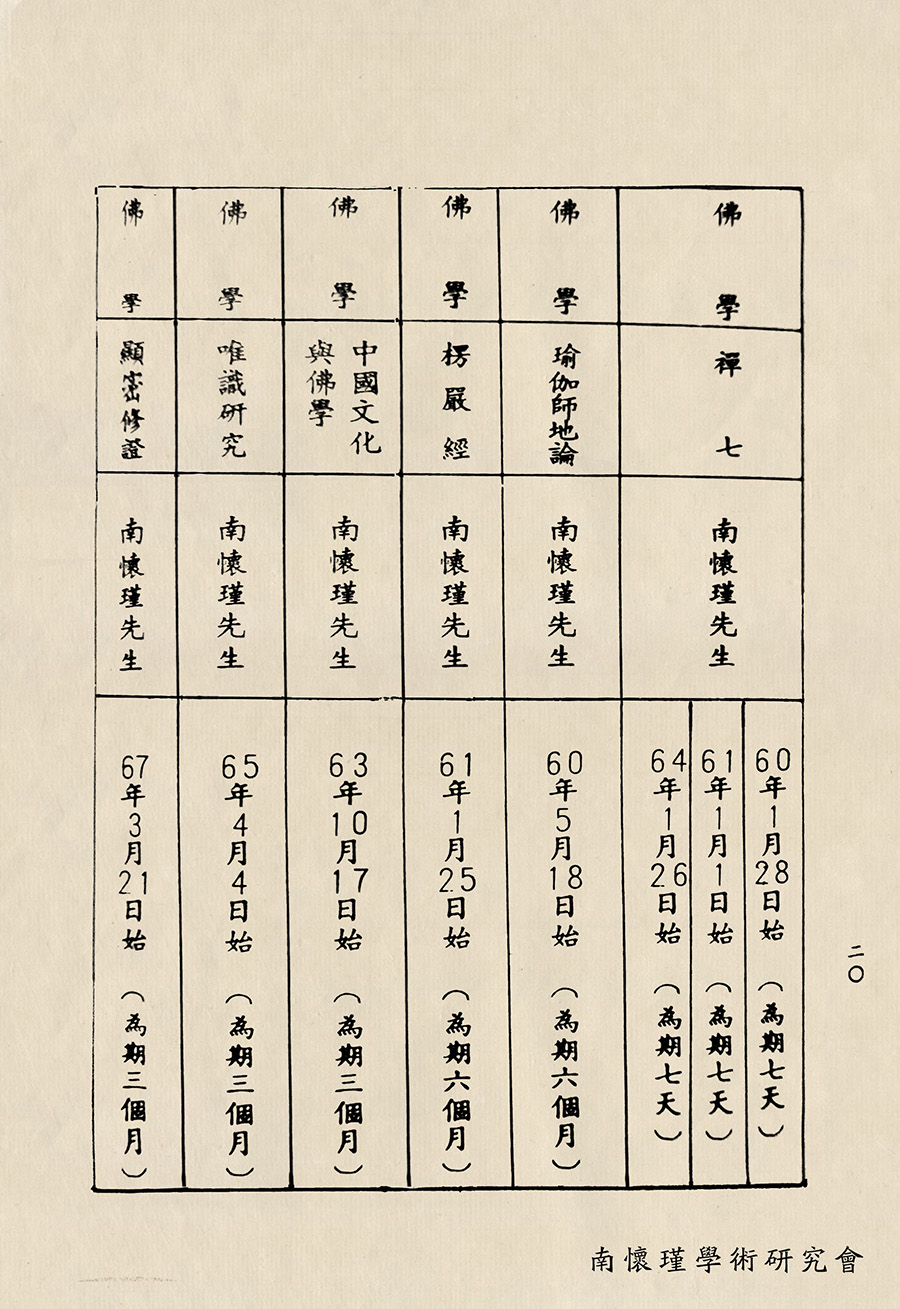 佛學
禪七
南懷瑾先生
60年1月28日始（為期七天）
61年1月1日始（為期七天）
64年1月26日始（為期七天）
佛學
瑜伽師地論
南懷瑾先生
60年5月18日始（為期六個月）
佛學
楞嚴經
南懷瑾先生
61年1月25日始（為期六個月）
佛學
中國文化
與佛學
南懷瑾先生
63年10月17日始（為期三個月）
佛學
唯識研究
南懷瑾先生
65年4月4日始（為期三個月）
佛學
顯密修證
南懷瑾先生
67年3月21日始（為期三個月）
二〇
南懷瑾學術研究會